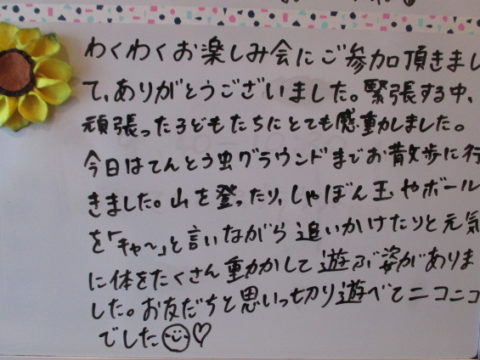 わくわくお楽しみ会にご参加頂きまし
て、ありがとうございました。緊張する中、
頑張った子どもたちにとても感動しました。
今日はてんとう虫グラウンドまでお散歩に行
きました。山を登ったり、しゃぼん玉やボール
を「キャ〜」と言いながら追いかけたりと元気
に体をたくさん動かして遊ぶ姿がありま
した。お友だちと思いっ切り遊べてニコニコ
でした